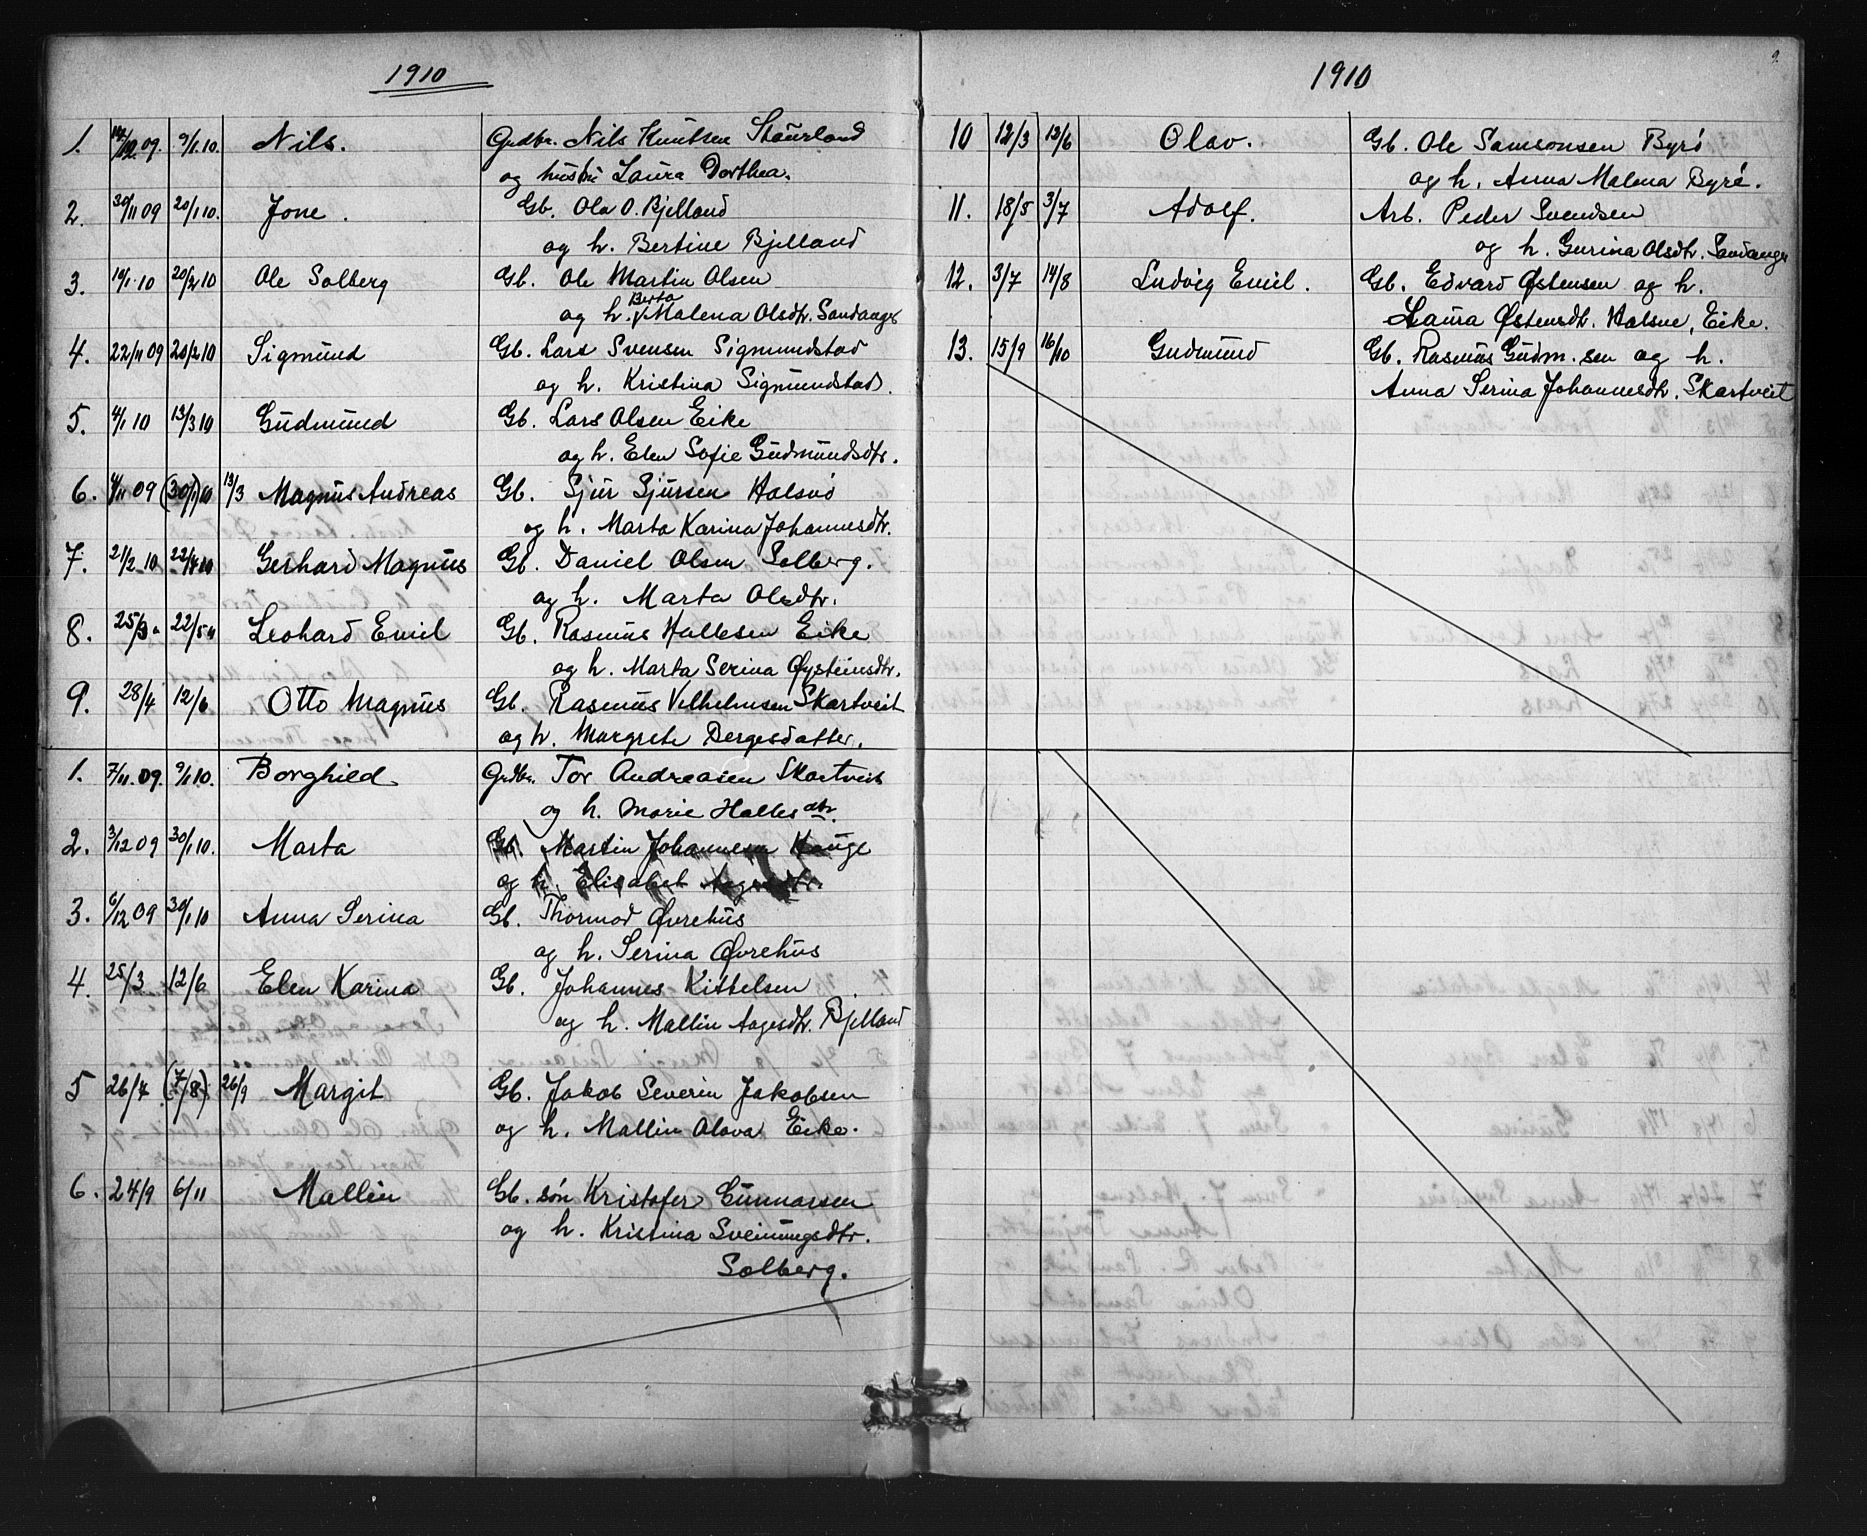 1910
1. 14/12.09. 9/1.10. Nils. Grdbr. Nils Knutsen Staurland
og hustru Laura Dorthea.
2. 30/11 09 20/1 10. Jone. Gb. Ola O. Bjelland
og h. Bertine Bjelland
3. 10/1.10 20/2 10 Ole Solberg Gb. Ole Martin Olsen
Berta
og h. Malena Olsdtr. Sandanger
4. 22/11 09 20/2 10 Sigmund Gb. Lars Svensen Sigmundstad
og h. Kristina Sigmundstad.
5. 4/1 10 13/3 10 Gudmund Gb. Lars Olsen Eike
og h. Elen Sofie Gudmundsdtr.
6. 4/11 09 (30/1) 10 13/3 Magnus Andreas Gb. Sjur Sjursen Halsnø
og h. Marta Karina Johannesdtr.
7. 21/2 10 22/4 10 Gerhard Magnus Gb. Daniel Olsen Solberg.
og h. Marta Olsdtr.
8. 25/3 " 22/5 " Leohard Emil Gb. Rasmus Hallesen Eike
og h. Marta Serina Øysteinsdtr.
9. 28/4 12/6 Otto Magnus Gb. Rasmus Vilhelmsen Skartveit
og h. Margrete Bergesdatter.
1. 7/11.09. 9/1 10. Borghild Grdbr. Tor Andreasen Skartveit
og h. Marie Hallesdtr.
2. 3/12 09 30/1 10. Marta Gb. Martin Johannesen Hauge
og h. Elisabet Aagesdtr.
3. 6/12 09 30/1 10 Anna Serina Gb. Thormod Øvrehus
og h. Serina Øvrehus
4. 25/3 12/6 Elen Karina Gb. Johannes Kittelsen
og h. Mallin Aagesdtr. Bjelland
5 26/7 (7/8) 26/9 Margit Gb. Jakob Severin Jakobsen
og h. Mallin Olava Eike.
6. 24/9 6/11 Mallin Gb. søn Kristofer Gunnarsen
og h. Kristina Sveinungsdtr.
Solberg.
1910
10 12/3 12/6 Olav. Gb. Ole Samsonsen Byrø
og h. Anna Malena Byrø.
11. 18/5 3/7 Adolf. Arb. Peder Svendsen
og h. Gurina Olsdtr. Sandanger
12. 3/7 14/8 Ludvig Emil. Gb. Edvard Østensen og h.
Laura Østensdtr. Halsne, Eike.
13. 15/9 16/10 Gudmund Gb. Rasmus Gudm.sen og h.
Anna Serina Johannesdtr. Skartveit